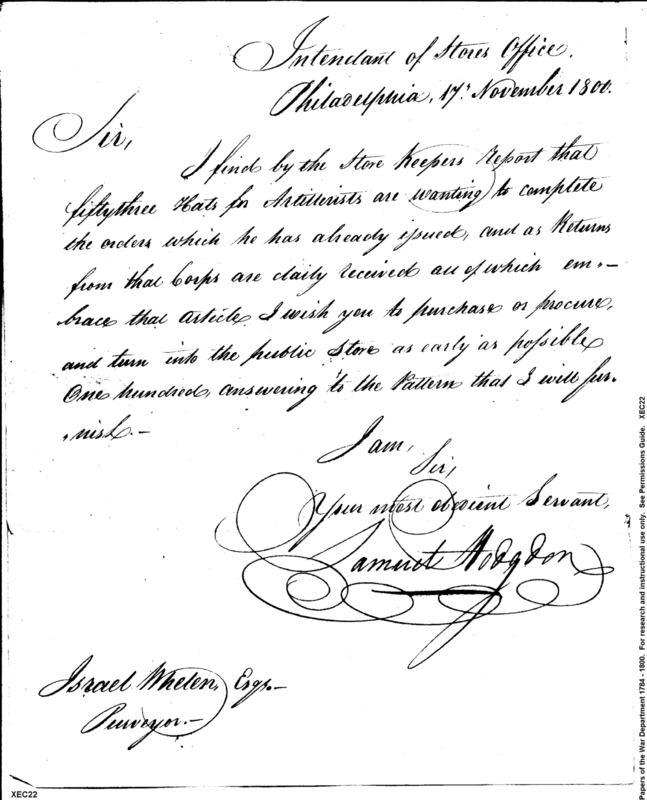 Intendant of Stores Office.
Philadelphia, 17th November 1800.
Sir,
I find by the Store Keepers report that
fiftythree Hats for Artillerists are wanting to complete
the orders which he has already issued, and as Returns
from that Corps are daily received all of which em-
brace that article I wish you to purchase or procure,
and turn into the public Store as early as possible
One hundred, answering to the Pattern that I will fur-
nish.-
I am,
Sir,
Your most obedient Servant,
Samuel Hodgdon
Israel Whelen, Esqr.-
Purveyor.-
XEC22
Papers of the War Department 1784 - 1800. For research and instructional use only. See Permissions Guide. XEC22